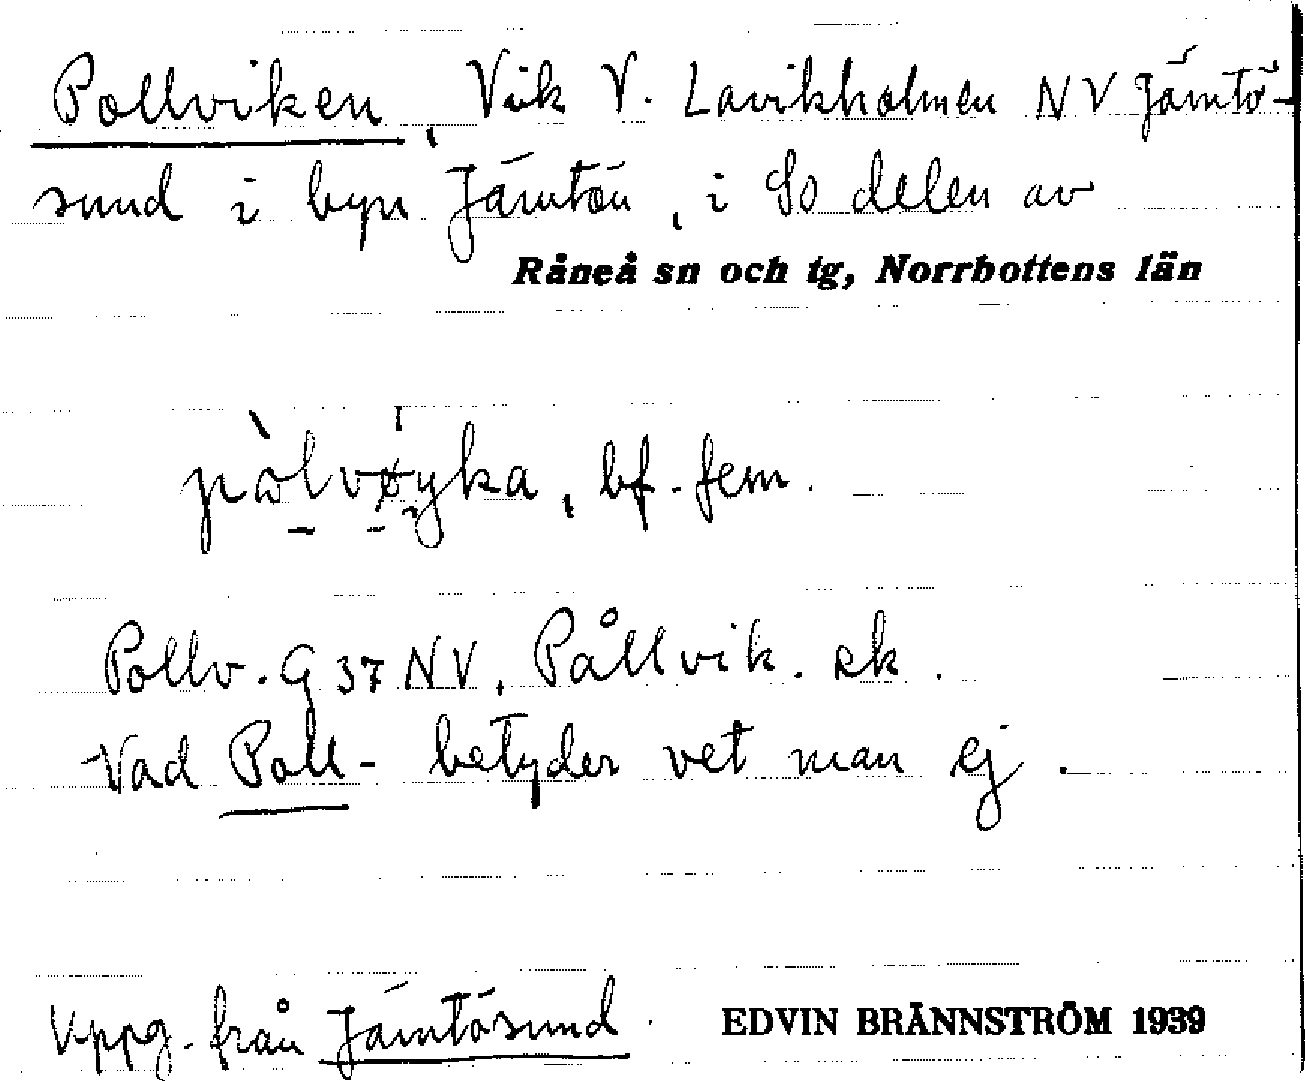 Pollviken, Vik V. Lavikholmen NV Jämtö-
sund i byn Jämtön, i So delen av
Råneå sn och tg, Norrbottens län
bf. fem.
Pollv. G 37 NV, Pållvik. ek.
Vad Poll- betyder vet man ej.
Uppg. från Jämtösund.
EDVIN BRÄNNSTRÖM 1939